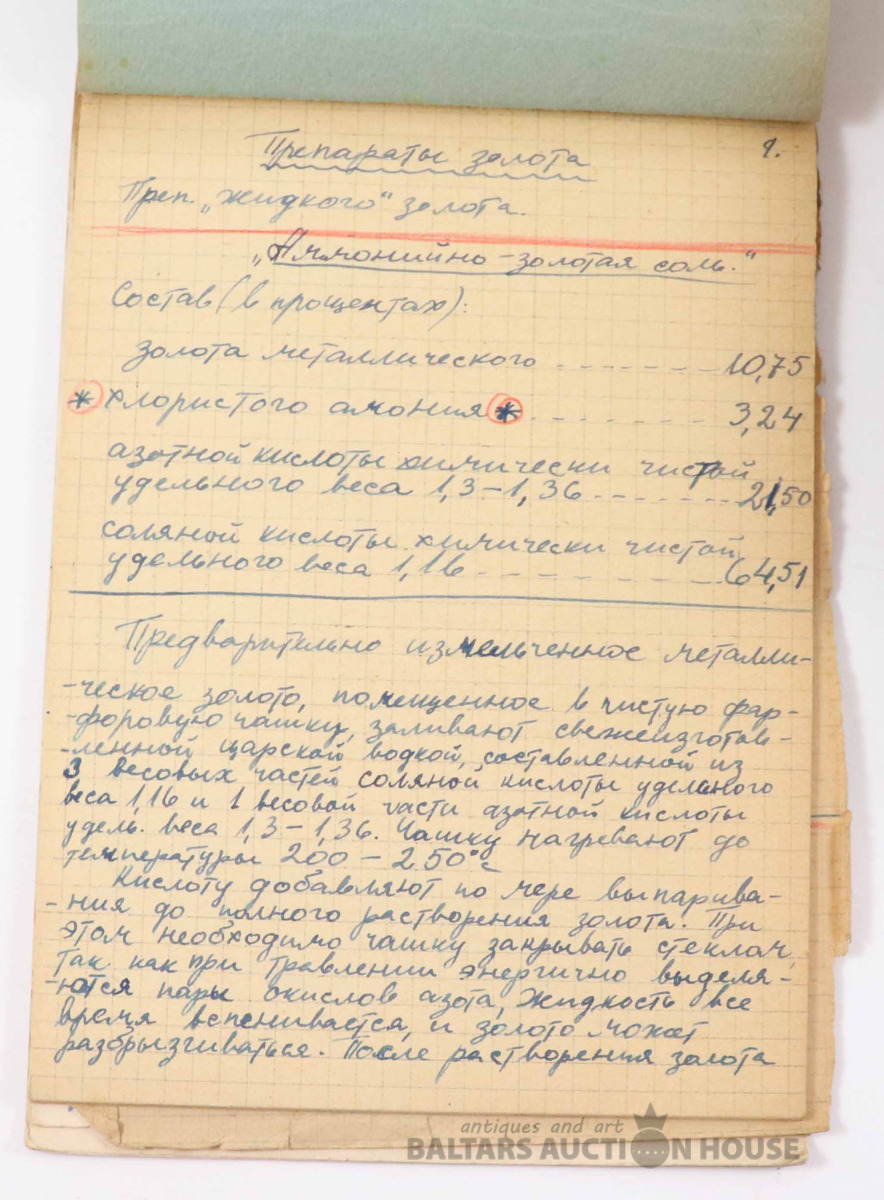 1.
Препараты золота
Преп. „жидкого" золота.
„Аммонийно-золотая соль."
Состав (в процентах):
золота металлического - - - - - - - 10,75
* хлористого амония * - - - - - - - 3,24
азотной кислоты химически чистой
удельного веса 1,3-1,36 - - - - - - - 21,50
соляной кислоты химически чистой
удельного веса 1,16 - - - - - - - 64,51
Предварительно измельченное металли-
-ческое золото, помещенное в чистую фар-
-форовую чашку, заливают свежеизготов-
-ленной царской водкой, составленной из
3 весовых частей соляной кислоты удельного
веса 1,16 и 1 весовой части азотной кислоты
удель. веса 1,3-1,36. Чашку нагревают до
температуры 200-250°с
Кислоту добавляют по мере выпарива-
-ния до полного растворения золота. При
этом необходимо чашку закрывать стеклом,
так как при травлении энергично выделя-
-ются пары окислов азота, жидкость все
время вспенивается, и золото может
разбрызгиваться. После растворения золота
antiques and art
BALTARS AUCTION HOUSE